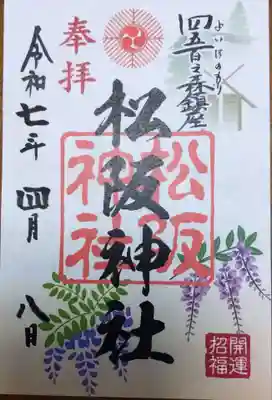 四五百之森鎮座
よいほのもり
奉拝
松阪神社
松阪神社
令和七年 四月 八日
開運招福